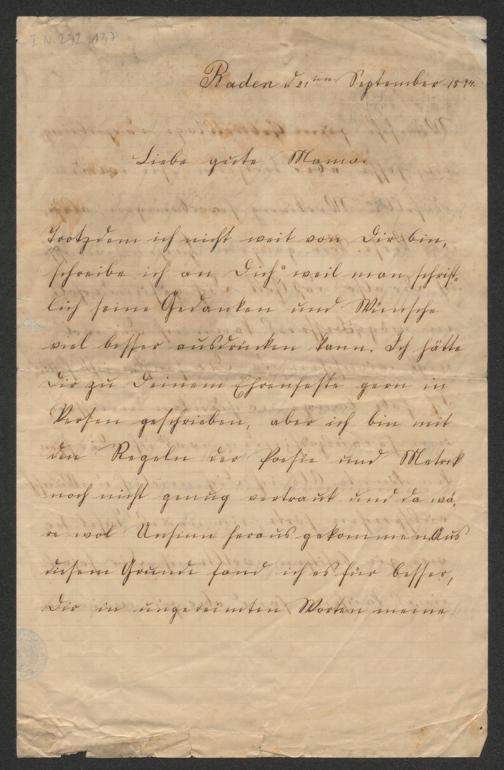 I. N. 232.137
Baden d. 21ten September 1894.
Liebe gute Mama.
Trotzdem ich nicht weit von Dir bin,
schreibe ich an Dich, weil man schrift-
lich seine Gedanken und Wünsche
viel besser ausdrücken kann. Ich hätte
Dir zu Deinem Ehrenfeste gern in
Versen geschrieben, aber ich bin mit
den Regeln der Poesie und Metrik
noch nicht genug vertraut und da wä-
re wol Unsinn herausgekommen. Aus
diesem Grunde fand ich es für besser,
Dir in ungereimten Worten meine